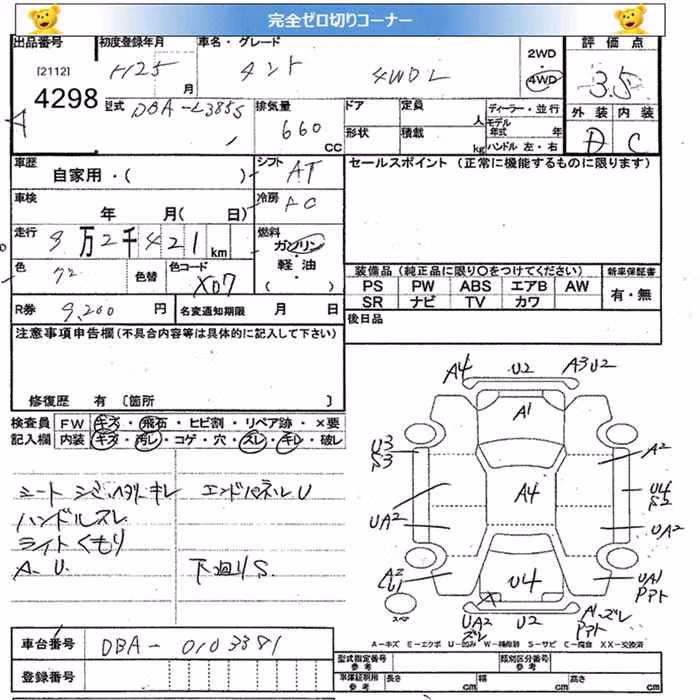 完全ゼロ切りコーナー
出品番号 初度登録年月 車名・グレード 評価点
[2112] H25 月 タント 4WD L 2WD 4WD 3.5
4298
型式 DBA-L385S 排気量 660 CC ドア 定員 人 ディーラー・並行 外装 内装
形状 積載 kg モデル年式 年 D C
ハンドル 左・右
車歴 自家用・( ) シフト AT セールスポイント (正常に機能するものに限ります)
車検 年 月( 日) 冷房 AC
走行 9万2千421km 燃料 ガソリン
軽油
( )
色 色替 色コード X07 装備品(純正品に限り○をつけてください) 新車保証書
PS PW ABS エアB AW 有・無
SR ナビ TV カワ
R券 9,200 円 名変通知期限 月 日 後日品
注意事項申告欄(不具合内容等は具体的に記入して下さい)
修復歴 有 〔箇所 〕
検査員 FW キズ・飛石・ヒビ割・リペア跡・×要
記入欄 内装 キズ・汚レ・コゲ・穴・スレ・キレ・破レ
シート シミ ヘタリ キレ エンドパネルU
ハンドルスレ
ライトくもり
A.U. 下廻りS
A4 U2 A3U2
A1
U3 S3 A2
A4 U4 S2
UA2 UA2
A2 U1 U4 UA1
スペア A Pアト
UA2 ズレ U2 A1 ズレ Pアト
A-キズ E-エクボ U-凹み W-補修跡 S-サビ C-腐食 XX-交換済
車台番号 DBA-0103381
登録番号
型式指定番号 類別区分番号
車庫証明用参考 長さ cm 幅 cm 高さ cm